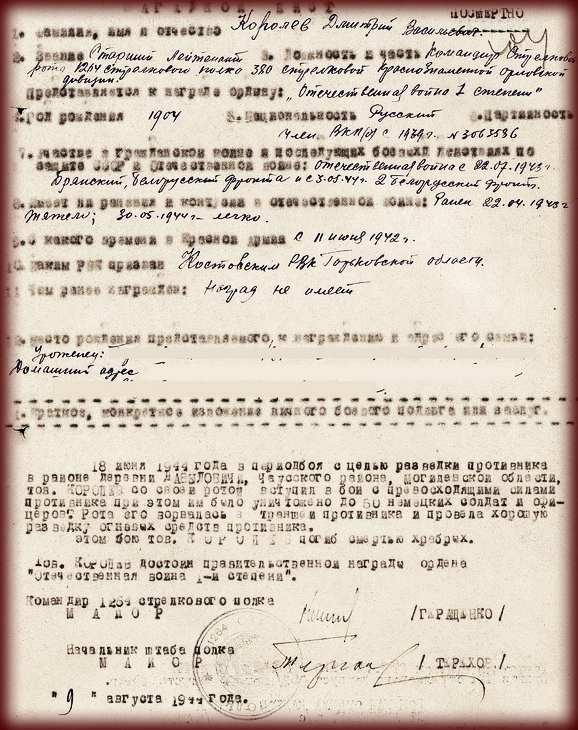 НАГРАДНОЙ ЛИСТ ПОСМЕРТНО
1. Фамилия, имя и отчество Королев Дмитрий Васильевич.
2. Звание Старший Лейтенант 3. Должность и часть Командир Стрелковой
роты 1264 стрелкового полка 380 стрелковой Краснознаменной орловской
дивизии
Представляется к награде ордену: „Отечественная война 1 степени"
4. Год рождения 1904 5. Национальность Русский 6. Партийность
Член ВКП(б) с 1939 г. N 3063586
7. Участие в гражданской войне и последующих боевых действиях по
защите СССР и Отечественной войне: Отечественная война с 22.07.1943г.
Брянский, Белорусский фронта и с 3.05.44г. 2 Белорусский фронт.
8. Имеет ли ранения и контузии в отечественной войне: Ранен 22.04.1943г
тяжело; 30.05.1944г – легко.
9. С какого времени в Красной Армии с 11 июня 1942 г.
10. Каким РВК призван Костовским РВК Горьковской области.
11. Чем ранее награжден: Наград не имеет
12. Место рождения представляемого, к награждению и адрес его семьи:
Уроженец:
Домашний адрес
1. Краткое, конкретное изложение личного боевого подвига или заслуг.
18 июня 1944 года в период боя с целью разведки противника
в районе деревни ДАВЫДОВИЧИ, Чаусского района, Могилевской области,
тов. КОРОЛЕВ со своей ротой вступил в бой с превосходящими силами
противника при этом им было уничтожено до 50 немецких солдат и офи-
церов. Рота его ворвалась в траншеи противника и провела хорошую
разведку огневых средств противника.
этом бою тов. К О Р О Л Е В погиб смертью храбрых.
Тов. КОРОЛЕВ достоин правительственной награды ордена
"Отечественная война 1-й степени".
Командир 1264 стрелкового полка
М А Й О Р /ГАРАЩЕНКО/
Начальник штаба полка
М А Й О Р / ТЕРЕХОВ/
" 9 " августа 1944 года.